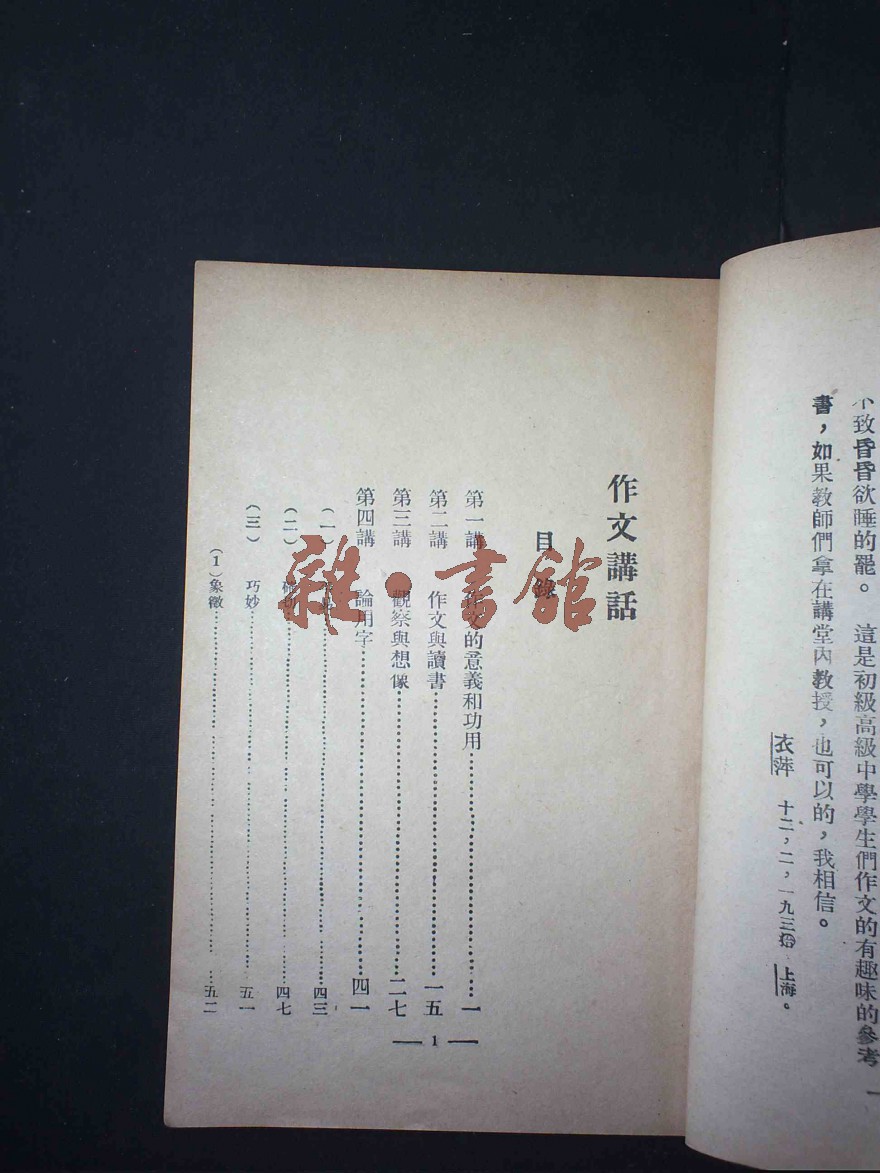 不致昏昏欲睡的罷。 這是初級高級中學學生們作文的有趣味的參考
書，如果教師們拿在講堂內教授，也可以的，我相信。
衣萍 十二，二，一九三 上海。
作文講話
目錄
第一講 作文的意義和功用……一
第二講 作文與讀書……一五
第三講 觀察與想像……二七
第四講 論用字……四一
（一）……四三
（二）……四七
（三） 巧妙……五一
（1）象徵……五二
— 1 —
雜·書館